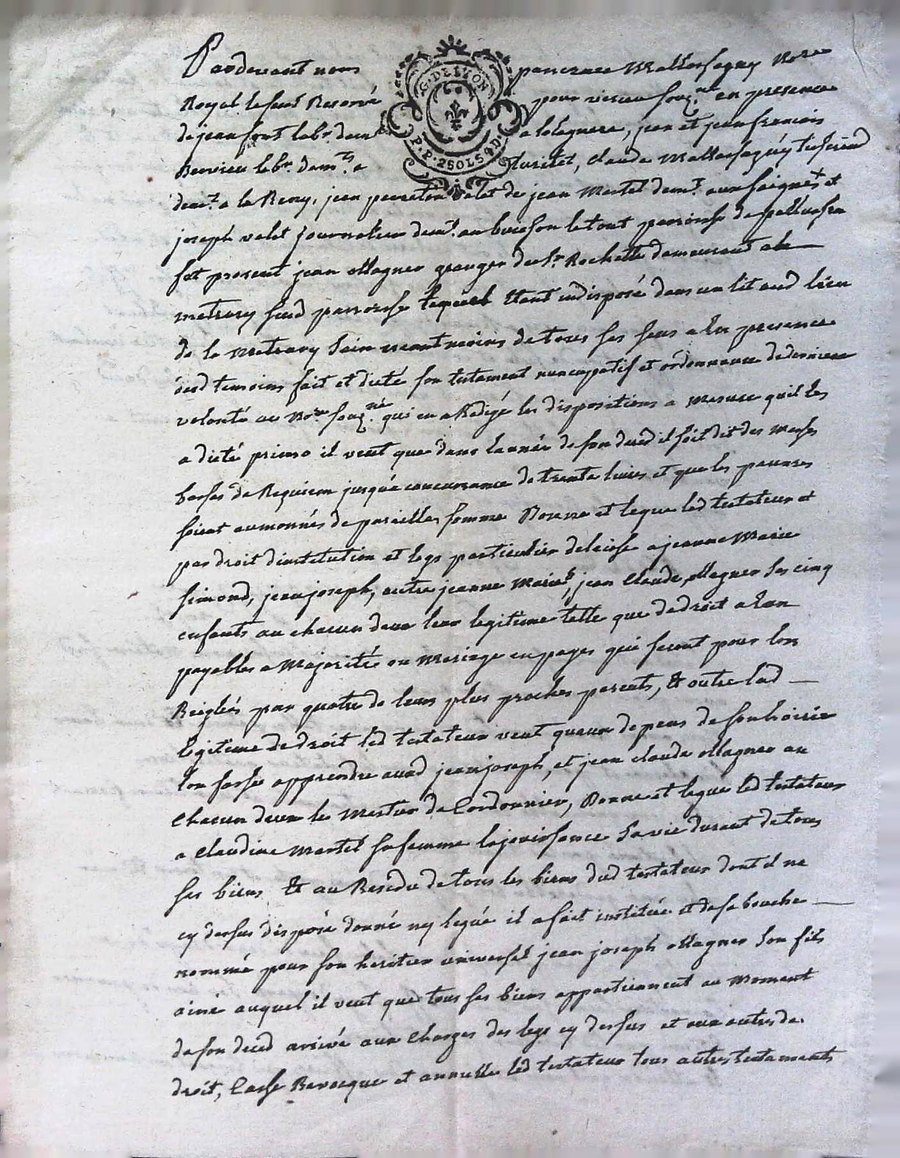 Pardevant nous pancrace Mallossagny No.re
Royal le sousd Reservé pour vieu souz.né en presence
de jean font lab.r dem.t a , jean et jean francois
lab.r dem.t a , Claude Mallossagny
G. DE LYON
P.P. 2 SOLS 4 D.
dem.t a la , jean valet de jean Martel dem.t et
joseph valet journalier dem.t au buisson le tout paroisse de
fut present jean Magner granger du S.r Rochette demeurant a la
paroisse lequel Etant indisposé dans un lit aud lieu
de la sain neantmoins de tous ses sens a En presence
desd temoins fait et dicté son testament nuncupatif et ordonnance de derniere
volonté au No.re souz.né qui en a Redigé les dispositions a Mesure qu'il les
a dicté primo il veut que dans l'année de son deced il soit dit des Messes
basses de Requiem jusqu'a concurrance de trente livres et que les pauvres
soient aumonnés de pareille somme Donne et legue led testateur et
par droit d'institution et legs particulier delaisse a jeanne Marie
Simond, jean joseph, autre jeanne Marie, jean Claude Magner ses cinq
enfants au chacun deux leur legitime telle que de droit a Eux
payables a Majorité ou Mariage en payes qui seront pour lors
Reiglés par quatre de leurs plus proches parents, Et outre lad
legitime de droit led testateur veut qu'aux depens de son hoirie
l'on fasse apprendre auxd jean joseph, et jean claude Magner au
chacun deux le Mestier de Cordonnier, Donne et legue led testateur
a Claudine Martel sa femme la jouissance sa vie durant de tous
ses biens Et au Residu de tous les biens dud testateur dont il ne
cy dessus disposé donné ny legué il a fait institué et de sa bouche
nommé pour son heritier universel jean joseph Magner son fils
ainé auquel il veut que tous ses biens appartiennent au Moment
de son deced arrivé aux Charges des legs cy dessus et aux autres de
droit, Casse Revocque et annulle led testateur tous autres testaments